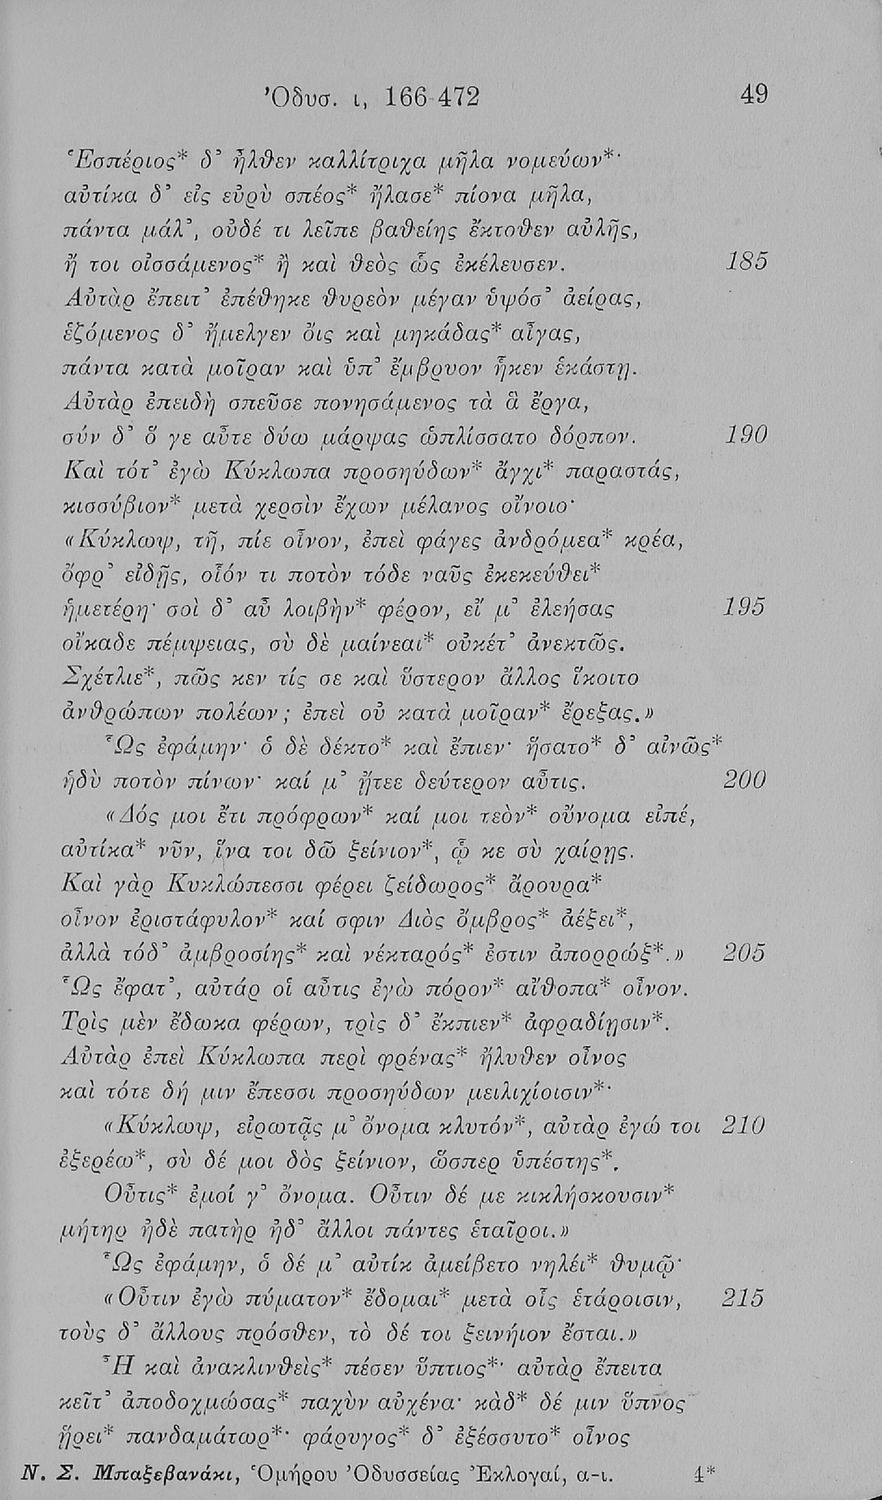 Ὀδυσ. ι, 166-472 49
Ἑσπέριος* δ' ἦλθεν καλλίτριχα μῆλα νομεύων*·
αὐτίκα δ' εἰς εὐρὺ σπέος* ἤλασε* πίονα μῆλα,
πάντα μάλ', οὐδέ τι λεῖπε βαθείης ἔκτοθεν αὐλῆς,
ἤ τοι οἰσσάμενος* ἢ καὶ θεὸς ὣς ἐκέλευσεν. 185
Αὐτὰρ ἔπειτ' ἐπέθηκε θυρεὸν μέγαν ὑψόσ' ἀείρας,
ἑζόμενος δ' ἤμελγεν ὄις καὶ μηκάδας* αἶγας,
πάντα κατὰ μοῖραν καὶ ὑπ' ἔμβρυον ἧκεν ἑκάστῃ.
Αὐτὰρ ἐπειδὴ σπεῦσε πονησάμενος τὰ ἃ ἔργα,
σύν δ' ὅ γε αὖτε δύω μάρψας ὡπλίσσατο δόρπον. 190
Καὶ τότ' ἐγὼ Κύκλωπα προσηύδων* ἄγχι* παραστάς,
κισσύβιον* μετὰ χερσὶν ἔχων μέλανος οἴνοιο·
«Κύκλωψ, τῆ, πίε οἶνον, ἐπεὶ φάγες ἀνδρόμεα* κρέα,
ὄφρ' εἰδῇς, οἷόν τι ποτὸν τόδε ναῦς ἐκεκεύθει*
ἡμετέρη· σοὶ δ' αὖ λοιβὴν* φέρον, εἴ μ' ἐλεήσας 195
οἴκαδε πέμψειας, σὺ δὲ μαίνεαι* οὐκέτ' ἀνεκτῶς.
Σχέτλιε*, πῶς κεν τίς σε καὶ ὕστερον ἄλλος ἵκοιτο
ἀνθρώπων πολέων; ἐπεὶ οὐ κατὰ μοῖραν* ἔρεξας.»
Ὣς ἐφάμην· ὁ δὲ δέκτο* καὶ ἔπιεν· ἥσατο* δ' αἰνῶς*
ἡδὺ ποτὸν πίνων· καί μ' ᾔτεε δεύτερον αὖτις. 200
«Δός μοι ἔτι πρόφρων* καί μοι τεὸν* οὔνομα εἰπέ,
αὐτίκα* νῦν, ἵνα τοι δῶ ξείνιον*, ᾧ κε σὺ χαίρῃς.
Καὶ γὰρ Κυκλώπεσσι φέρει ζείδωρος* ἄρουρα*
οἶνον ἐριστάφυλον* καί σφιν Διὸς ὄμβρος* ἀέξει*,
ἀλλὰ τόδ' ἀμβροσίης* καὶ νέκταρός* ἐστιν ἀπορρώξ*.» 205
Ὣς ἔφατ', αὐτάρ οἱ αὖτις ἐγὼ πόρον* αἴθοπα* οἶνον.
Τρὶς μὲν ἔδωκα φέρων, τρὶς δ' ἔκπιεν* ἀφραδίῃσιν*.
Αὐτὰρ ἐπεὶ Κύκλωπα περὶ φρένας* ἤλυθεν οἶνος
καὶ τότε δή μιν ἔπεσσι προσηύδων μειλιχίοισιν*·
«Κύκλωψ, εἰρωτᾷς μ' ὄνομα κλυτόν*, αὐτὰρ ἐγώ τοι 210
ἐξερέω*, σὺ δέ μοι δὸς ξείνιον, ὥσπερ ὑπέστης*.
Οὖτις* ἐμοί γ' ὄνομα. Οὖτιν δέ με κικλήσκουσιν*
μήτηρ ἠδὲ πατὴρ ἠδ' ἄλλοι πάντες ἑταῖροι.»
Ὣς ἐφάμην, ὁ δέ μ' αὐτίκ ἀμείβετο νηλέι* θυμῷ·
«Οὖτιν ἐγὼ πύματον* ἔδομαι* μετὰ οἷς ἑτάροισιν, 215
τοὺς δ' ἄλλους πρόσθεν, τὸ δέ τοι ξεινήιον ἔσται.»
Ἦ καὶ ἀνακλινθεὶς* πέσεν ὕπτιος*· αὐτὰρ ἔπειτα
κεῖτ' ἀποδοχμώσας* παχὺν αὐχένα· κὰδ* δέ μιν ὕπνος
ᾕρει* πανδαμάτωρ*· φάρυγος* δ' ἐξέσσυτο* οἶνος
Ν. Σ. Μπαξεβανάκι, Ὁμήρου Ὀδυσσείας Ἐκλογαί, α-ι. 4*